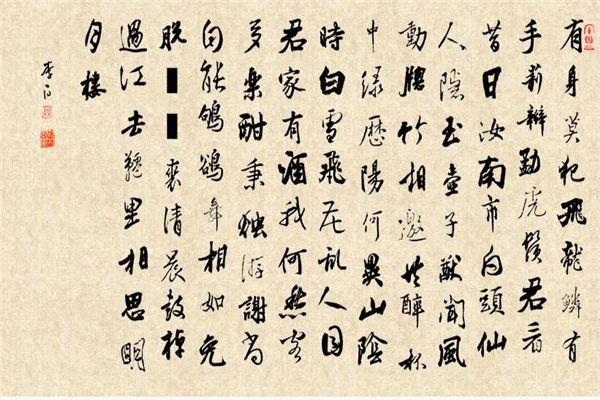 有身莫犯飛龍鱗有
手莉辮勐虎鬚君看
昔日汝南市白頭仙
人隱玉壺子猷聞風
動牕竹相邀共醉杯
中緑歷陽何異山陰
時白雪飛花亂人目
君家有酒我何愁客
多樂酣秉獨游謝尚
自能鴝鵒舞相如免
脱裘清晨鼓棹
過江去韆里相思明
月樓
李白